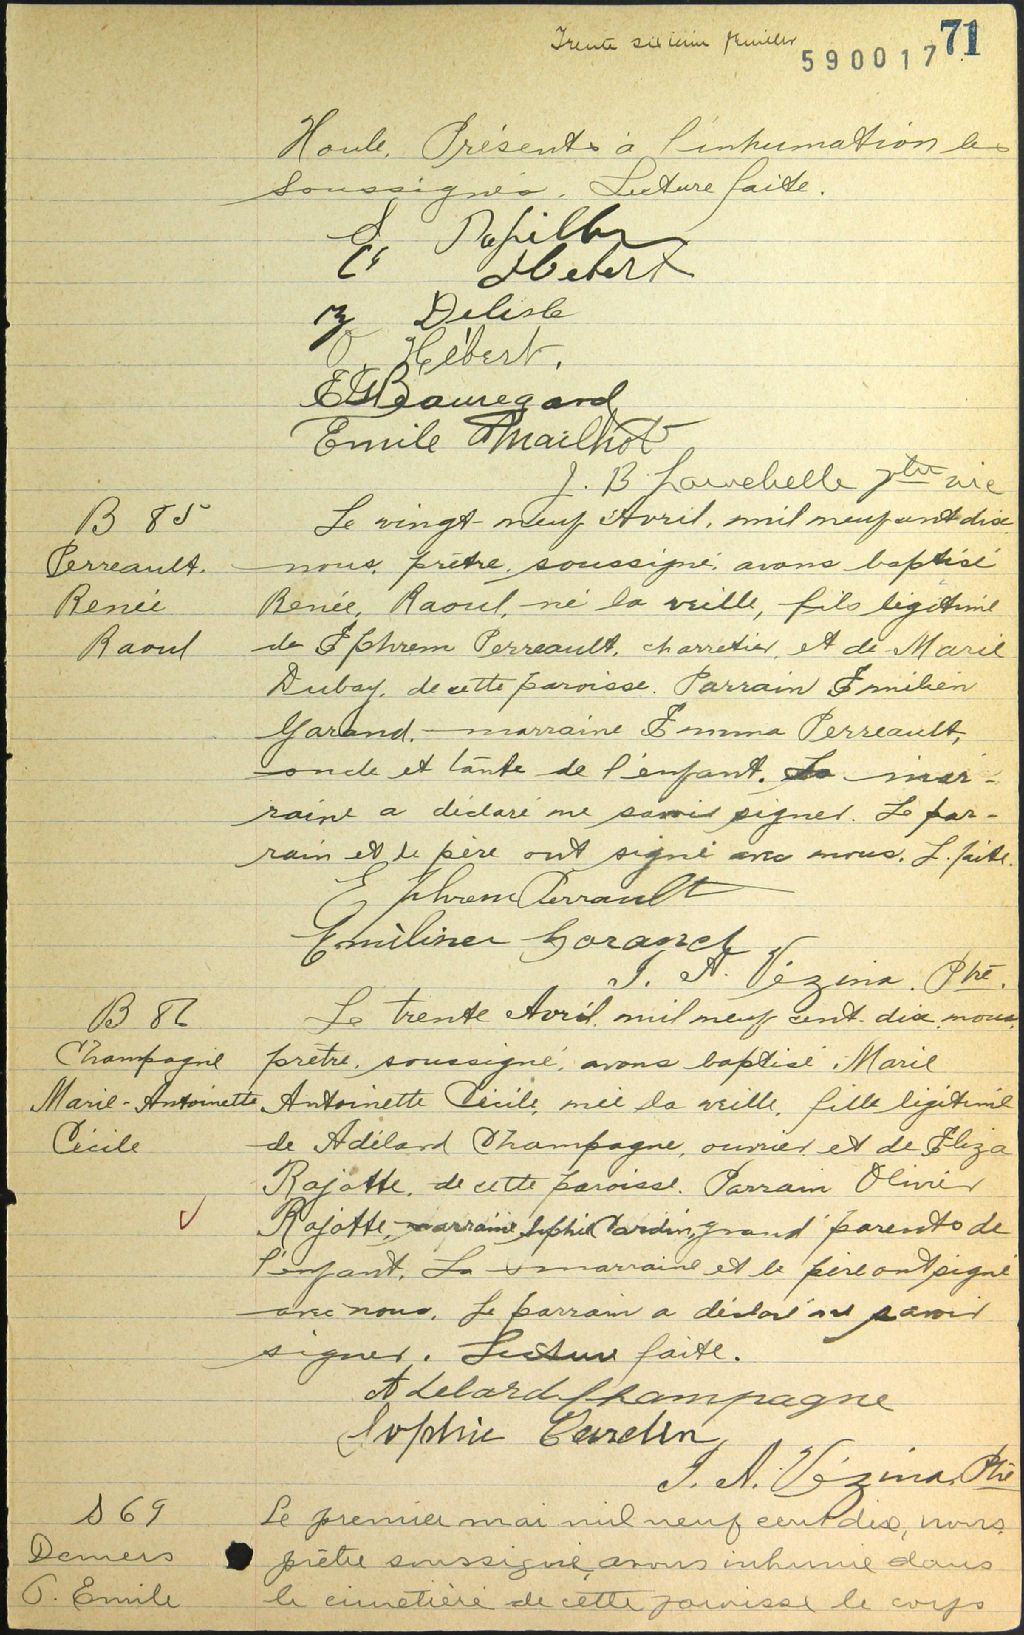 Trente sixième feuillet
590017 71
Houle. Présents à l'inhumation les
soussignés. Lecture faite.
Hébert
Delisle
Hébert.
Beauregard
Emile Mailhot
J. B. ptre vic
B 85
Perreault.
Renée
Raoul
Le vingt-neuf Avril, mil neuf cent dix
nous, prêtre, soussigné, avons baptisé
Renée, Raoul, né la veille, fils légitime
de Ephrem Perreault, charretier, et de Marie
Dubay, de cette paroisse. Parrain Emilien
Garand, marraine Emma Perreault,
oncle et tante de l'enfant. La mar-
raine a déclaré ne savoir signer. Le par-
rain et le père ont signé avec nous. L. faite.
Ephrem Perrault
Garand
J. A. Vézina. Ptre.
B 86
Champagne
Marie-Antoinette
Cécile
Le trente Avril, mil neuf cent-dix, nous,
prêtre, soussigné, avons baptisé, Marie
Antoinette Cécile, née la veille, fille légitime
de Adélard Champagne, ouvrier et de Eliza
Rajotte, de cette paroisse. Parrain Olivier
Rajotte, marraine Sophie Cardin, grand parents de
l'enfant. La marraine et le père ont signé
avec nous. Le parrain a déclaré ne savoir
signer. Lecture faite.
Adelard Champagne
Sophie Cardin
J. A. Vézina, Ptre
S 69
Demers
Emile
Le premier mai mil neuf cent dix, nous,
prêtre soussigné, avons inhumé dans
le cimetière de cette paroisse le corps